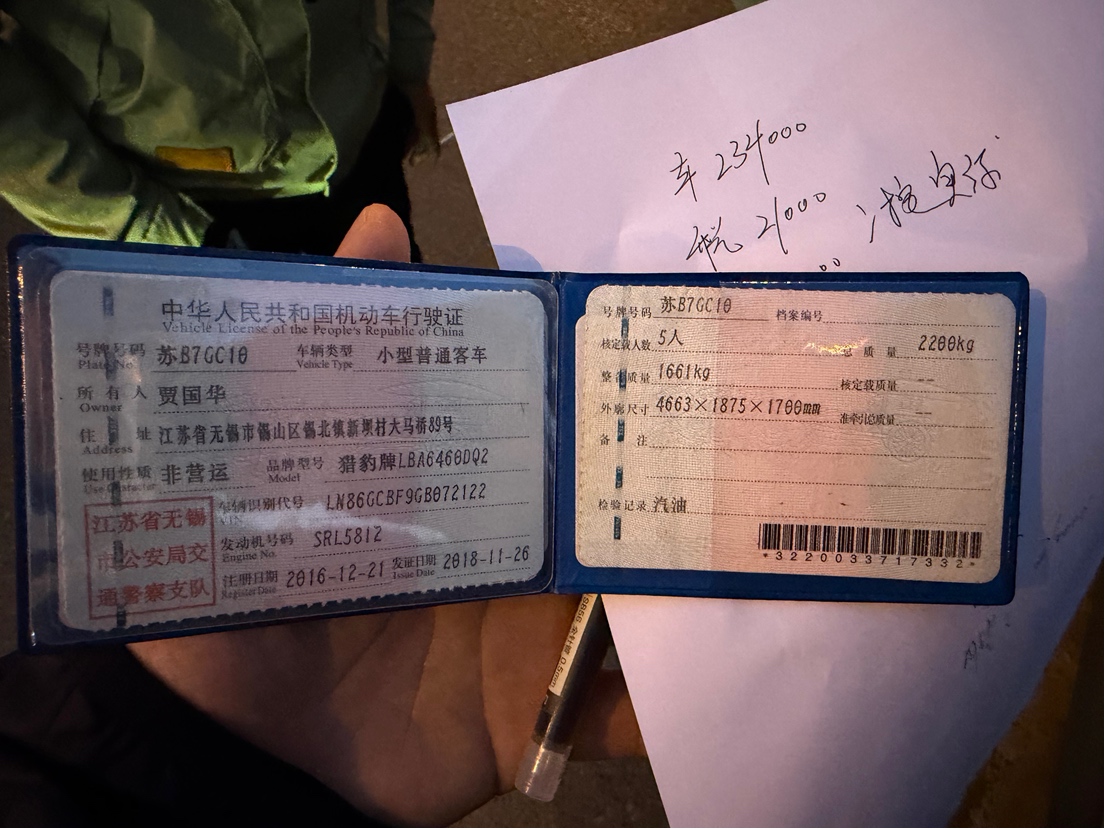 车 234000
税 21000
00
中华人民共和国机动车行驶证
Vehicle License of the People's Republic of China
号牌号码 苏B7GC10 车辆类型 小型普通客车
Plate No. Vehicle Type
所有人 贾国华
Owner
住址 江苏省无锡市锡山区锡北镇新坝村大马桥89号
Address
使用性质 非营运 品牌型号 猎豹牌LBA6460DQ2
Use Character Model
车辆识别代号 LN86GCBF9GB072122
VIN
发动机号码 SRL5812
Engine No.
注册日期 2016-12-21 发证日期 2018-11-26
Register Date Issue Date
江苏省无锡
市公安局交
通警察支队
号牌号码 苏B7GC10 档案编号
核定载人数 5人 总质量 2200kg
整备质量 1661kg 核定载质量 --
外廓尺寸 4663×1875×1700mm 准牵引总质量 --
备注
检验记录 汽油
*3220033717332*
0.5mm